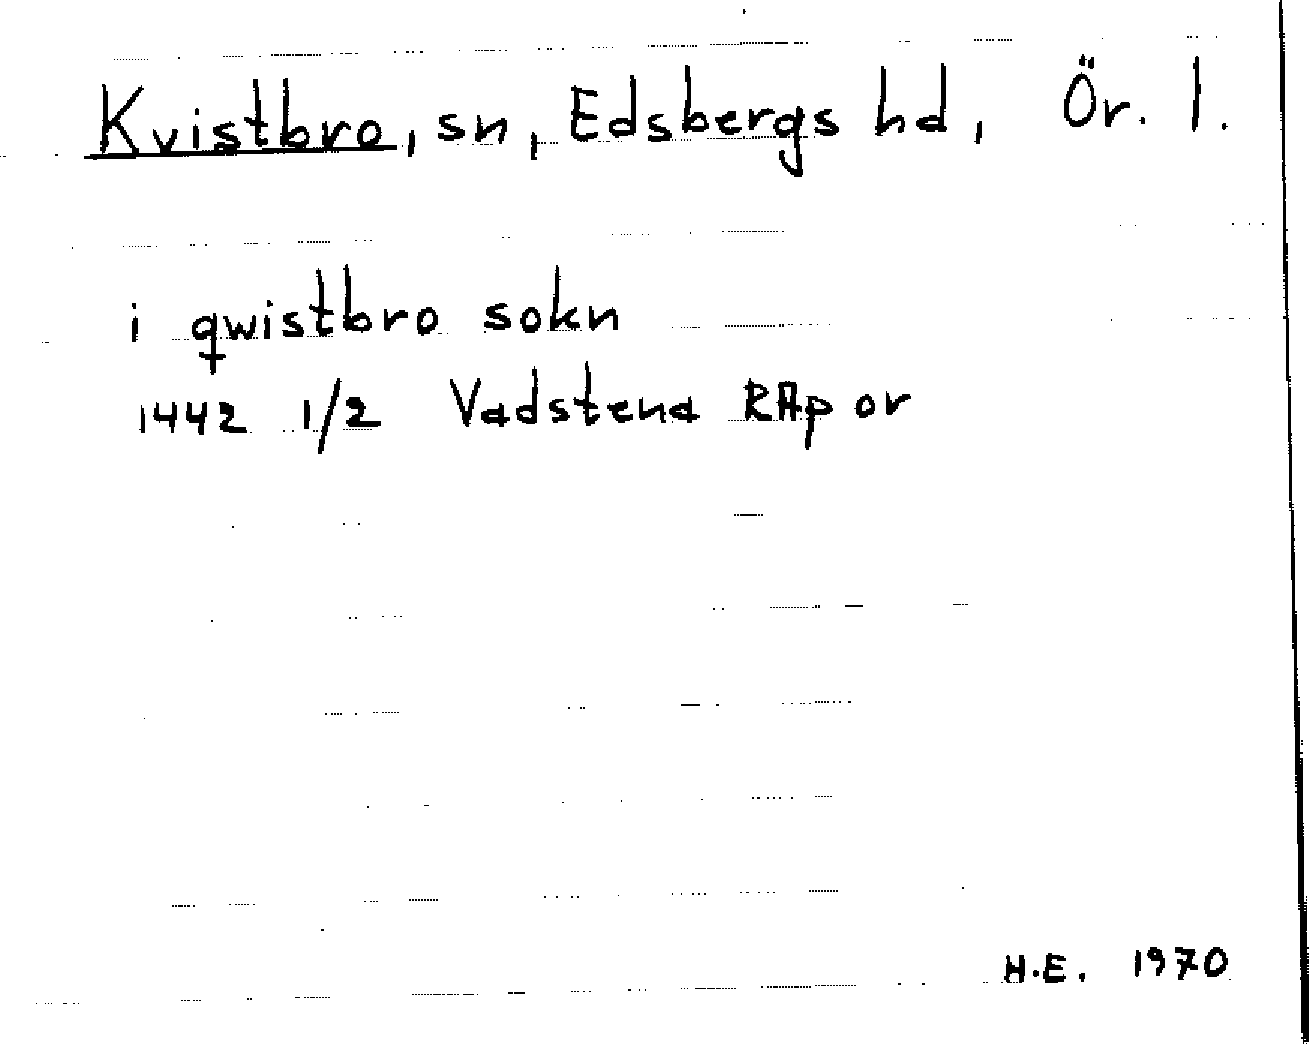 Kvistbro, sn, Edsbergs hd, Ör. l.
i qwistbro sokn
1442 1/2 Vadstena RAp or
H.E. 1970